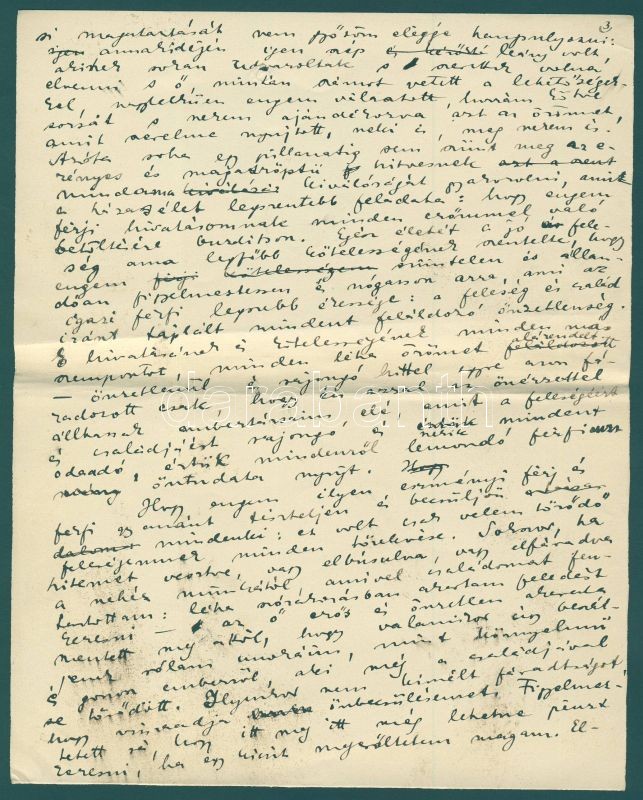 3
si magatartását nem győzöm eléggé hangsúlyozni:
igen annakidején igen szép és leány volt,
akinek sokan udvaroltak s szerették volna
elvenni s ő, miután számot vetett a lehetőségek-
kel, egyszerűen engem választott, hozzám kötve
sorsát s nekem ajándékozva azt az örömet,
amit szerelme nyujtott, neki és még nekem is.
Azóta soha egy pillanatig sem szünt meg az e-
rényes és magasröptű hitvesnek azt a szent
mindama kiválóságát gyakorolni, amik
a házasélet legszentebb feladata: hogy engem
férji hivatásomnak minden erőmmel való
betöltésére buzdítson. Egész életét a jó fele-
ség ama legfőbb kötelességének szentelte, hogy
engem férji kötelességem szüntelen és állan-
dóan figyelmeztessen és nógasson arra, ami az
igazi férfi legszebb éressége: a feleség és család
iránt táplált mindent feláldozó önzetlenség.
E hivatásának és kötelességének minden más
szempontot, minden léha örömet alárendelt feláldozott
— önzetlenül s rajongó hittel egyre azon fá-
radozott csak, hogy én azzal az önérzettel
állhassak embertársaim elé, amit a feleségéért
és családjáért rajongó és értük mindent
odaadó, értük mindenről lemondó férfiúnak
öntudata nyujt.
Hogy engem ilyen eszményi férj és
férfi gyanánt tiszteljen és becsüljön
mindenki: ez volt csak velem törődő
feleségemnek minden törekvése. Sokszor, ha
hitemet vesztve, vagy elbúsulva, vagy elfáradva
a nehéz munkától amivel családomat fen-
tartottam: léha szórakozásban akartam feledést
keresni — az ő erős és önzetlen akarata
mentett meg attól, hogy valamikor úgy beszél-
jenek rólam unokáim, mint könnyelmű
és gonosz emberről, aki még a családjával
se törődött. Ilyenkor nem kimélt fáradtságot
hogy visszaadja önbecsülésemet. Figyelmez-
tetett rá, hogy itt meg itt még lehetne pénzt
keresni, ha egy kicsit megerőltetem magam. El-
darabanth